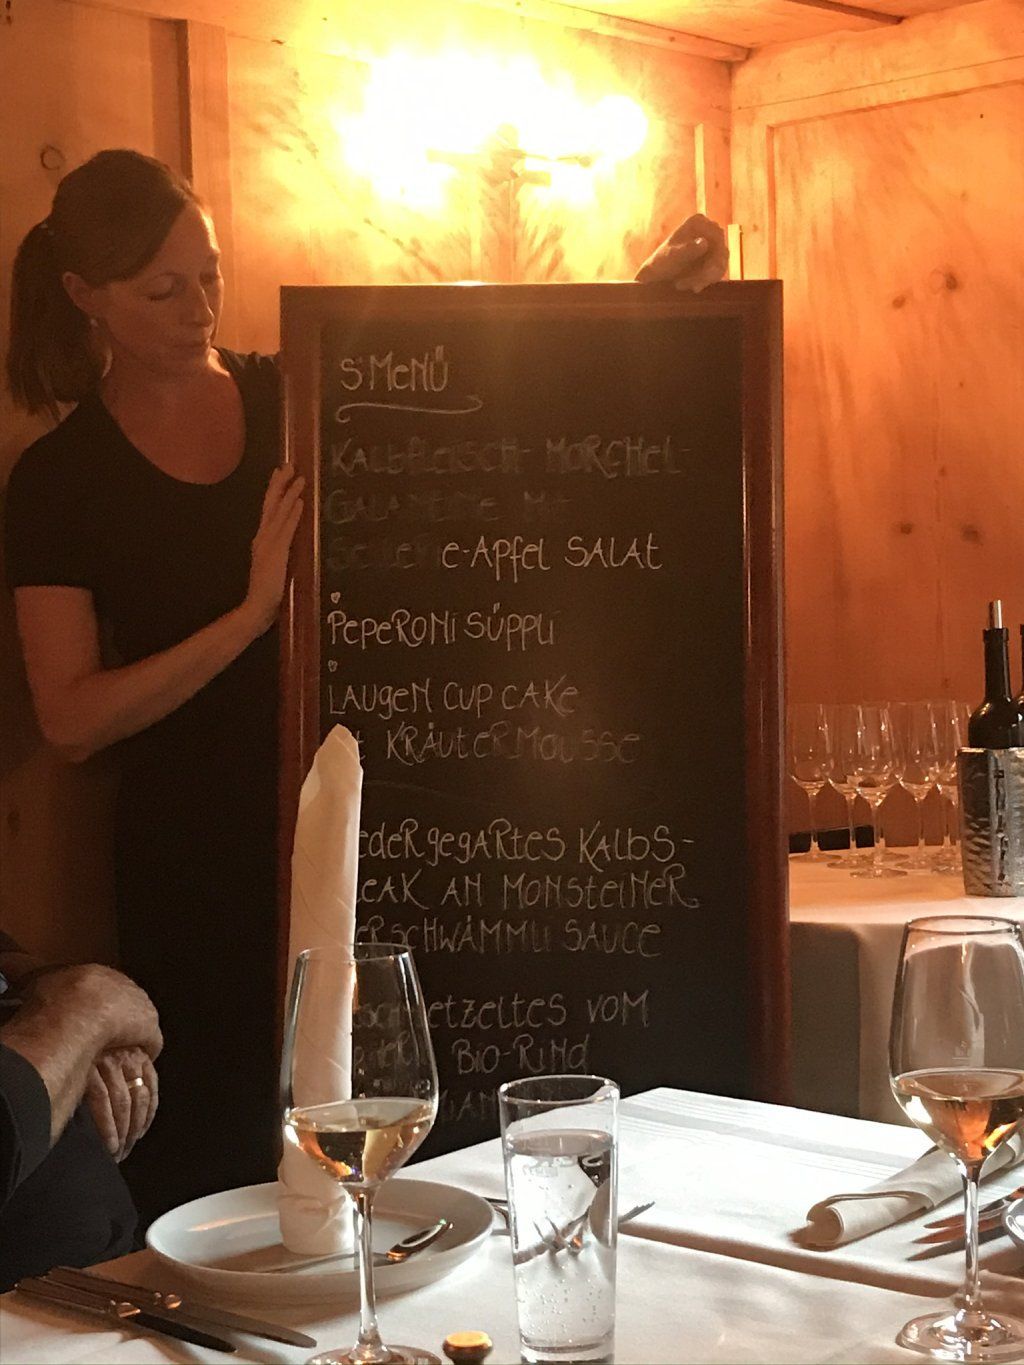 S'MENÜ
KALBFLEISCH-MORCHEL-
GALANTINE MIT
SELLERIE-APFEL SALAT
PEPERONI SÜPPLI
LAUGEN CUP CAKE
KRÄUTERMOUSSE
EDERGEGARTES KALBS-
EAK AN MONSTEINER
ERSCHWÄMMLI SAUCE
ESCHNETZELTES VOM
BIO-RIND